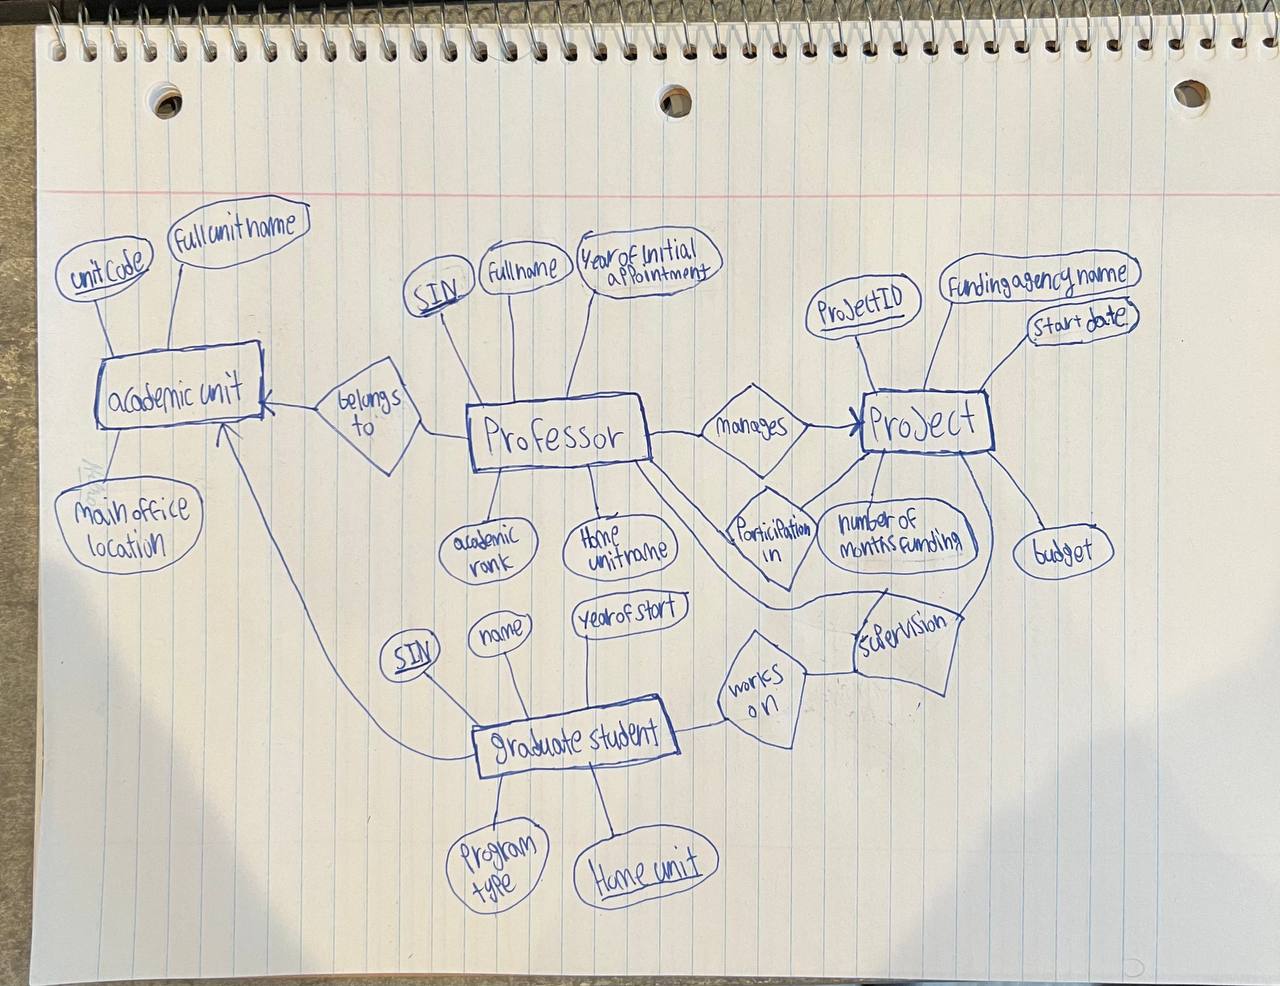 unitCode
Full unit name
academic unit
main office
location
belongs
to
SIN
Full name
Year of Initial
appointment
Professor
academic
rank
Home
unit name
manages
ProjectID
Funding agency name
Start date
Project
Participation
in
number of
months Funding
budget
supervision
works
on
SIN
name
year of start
graduate student
Program
type
Home unit